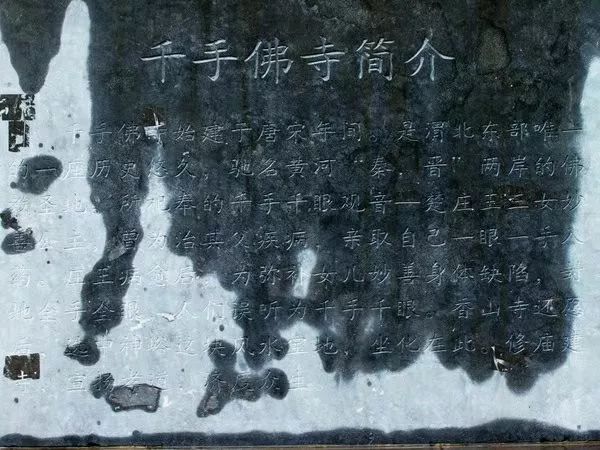 千手佛寺简介
千手佛寺始建于唐宋年间。是渭北东部唯一
的一座历史悠久，驰名黄河“秦、晋”两岸的佛
教圣地。所祀奉的千手千眼观音—楚庄王三女妙
善公主，曾为治其父疾病，亲取自己一眼一手入
药。庄王病愈后，为弥补女儿妙善身体缺陷，
她全手全眼。人们误听为千手千眼。香山寺还愿
选中神岭这块风水宝地，坐化在此。修庙建
宣扬孝道，济度众生